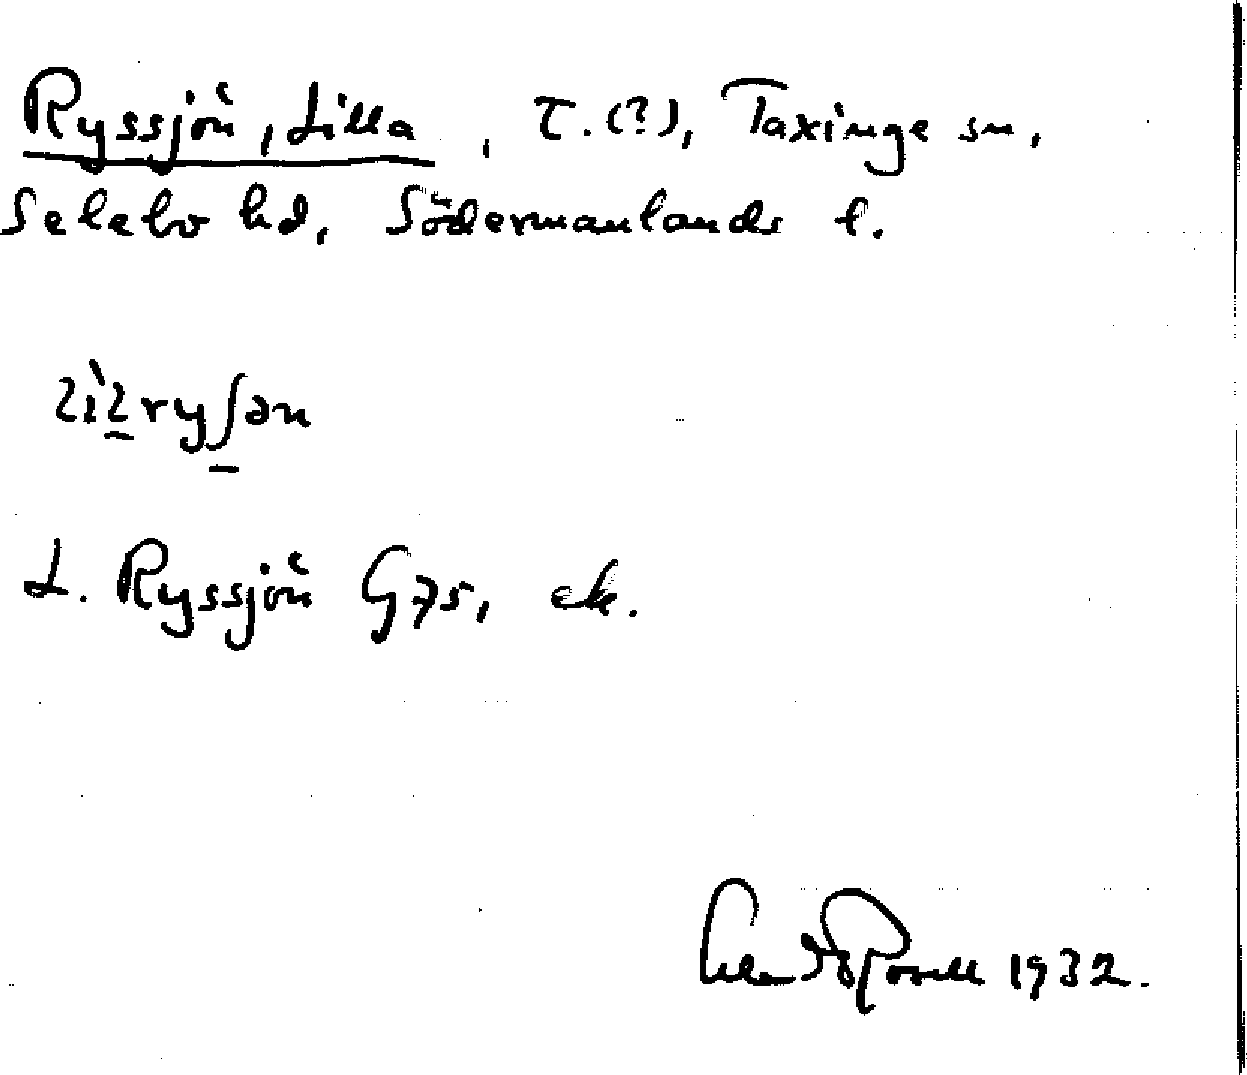 Ryssjön, Lilla, T. (?), Taxinge sn,
Selebo hd, Södermanlands l.
L. Ryssjön G75, ek.
1932.